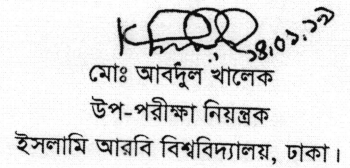 মোঃ আবদুল খালেক
উপ-পরীক্ষা নিয়ন্ত্রক
ইসলামি আরবি বিশ্ববিদ্যালয়, ঢাকা।